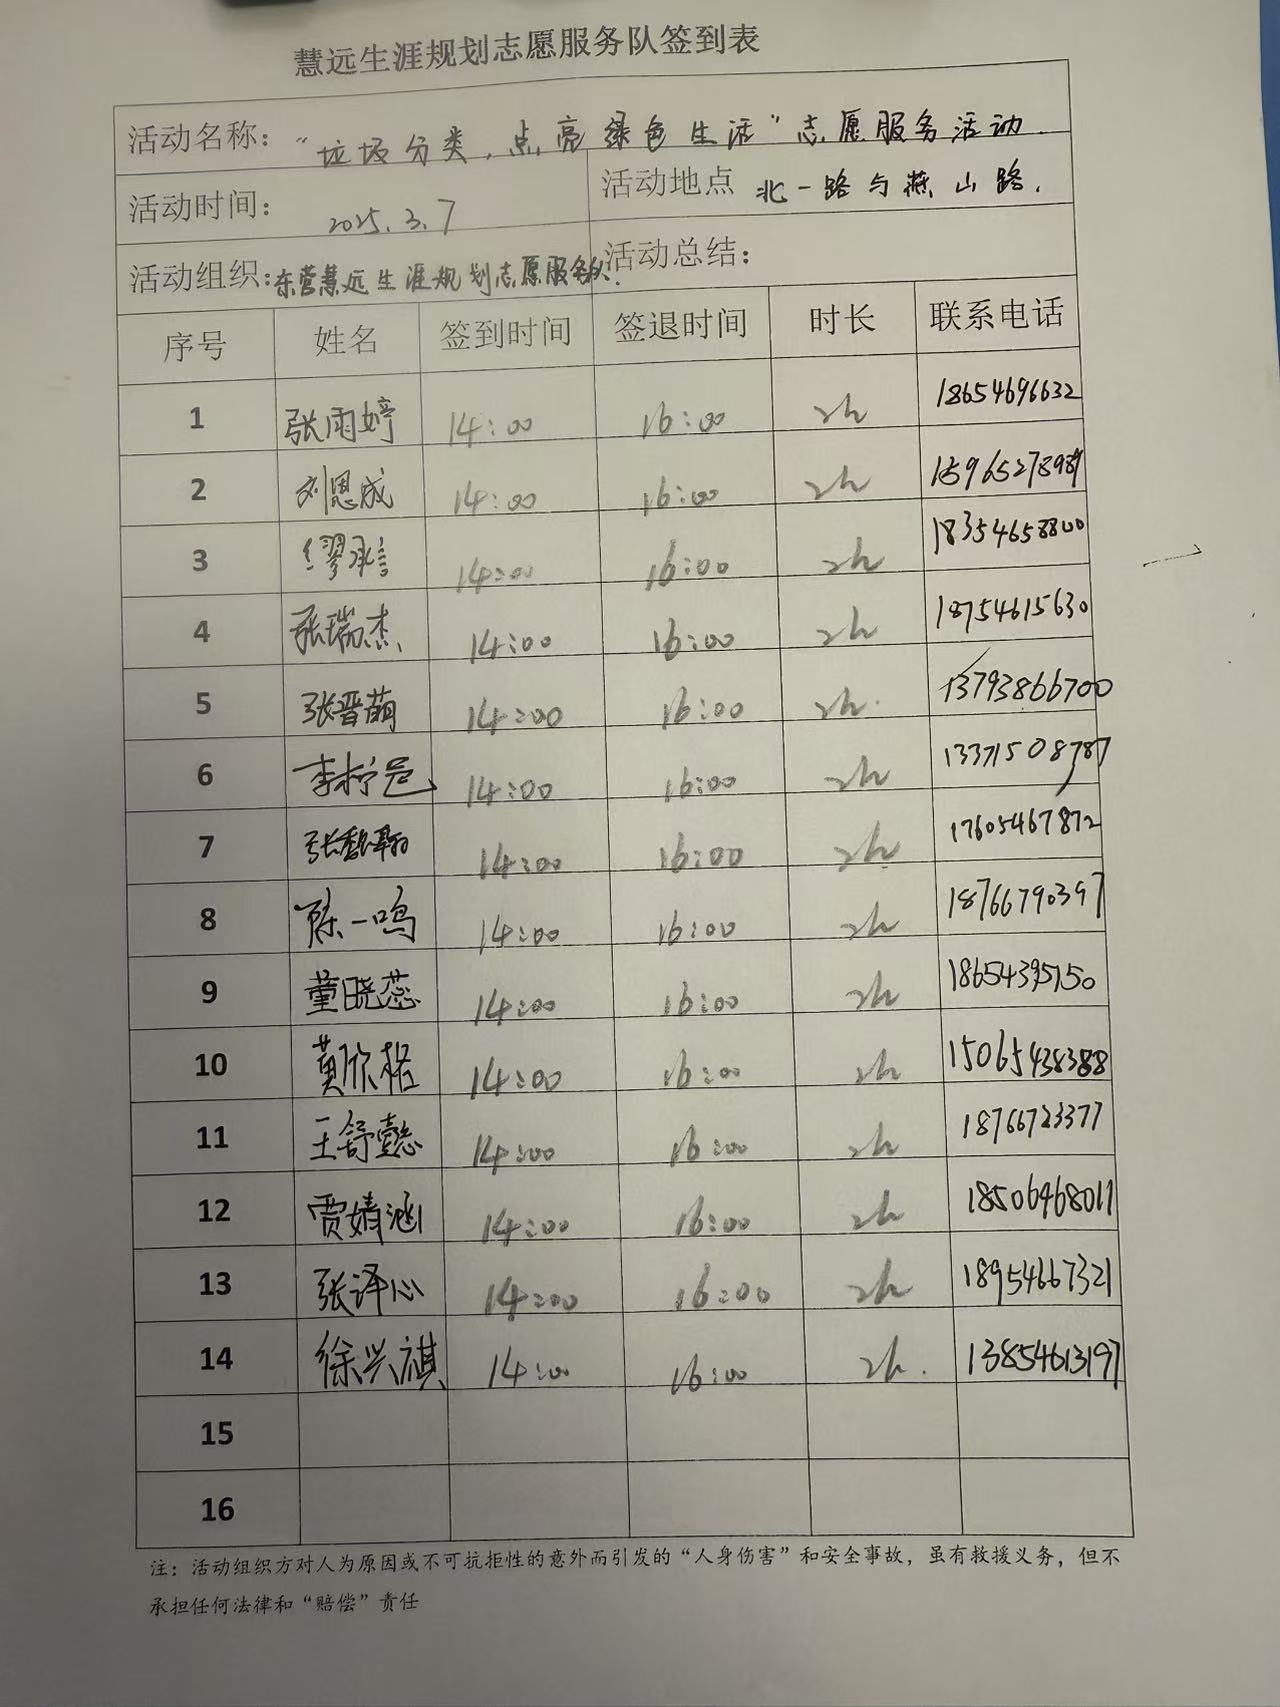 慧远生涯规划志愿服务队签到表
活动名称：“垃圾分类，点亮绿色生活”志愿服务活动.
活动时间： 2025.3.7 活动地点 北一路与燕山路.
活动组织:东营慧远生涯规划志愿服务队. 活动总结：
序号 姓名 签到时间 签退时间 时长 联系电话
1 张雨婷 14:00 16:00 2h 18654696632
2 刘恩成 14:00 16:00 2h 15965278989
3 缪承言 14:00 16:00 2h 18354658800
4 张瑞杰 14:00 16:00 2h 18754615630
5 张晋萌 14:00 16:00 2h. 13793866700
6 李柠邑 14:00 16:00 2h 13371508787
7 14:00 16:00 2h 17605467872
8 陈一鸣 14:00 16:00 2h 18766790397
9 董晓蕊 14:00 16:00 2h 18654395150
10 黄欣格 14:00 16:00 2h 15065438388
11 王舒懿 14:00 16:00 2h 18766723377
12 贾婧涵 14:00 16:00 2h 18506468011
13 张译心 14:00 16:00 2h 18954667321
14 徐兴祺 14:00 16:00 2h. 13854613197
15
16
注：活动组织方对人为原因或不可抗拒性的意外而引发的“人身伤害”和安全事故，虽有救援义务，但不
承担任何法律和“赔偿”责任